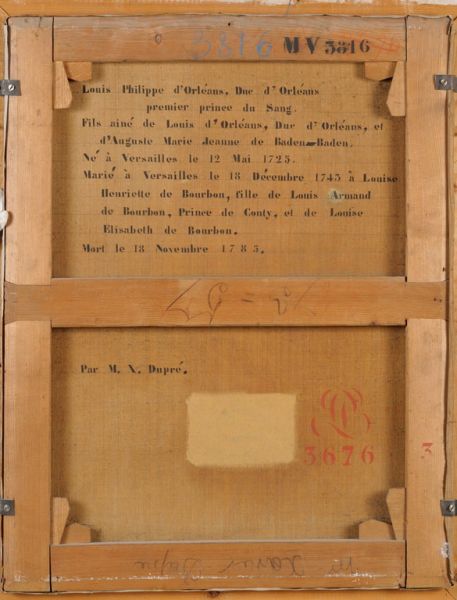 3816 MV 3816
Louis Philippe d'Orléans, Duc d'Orléans
premier prince du Sang.
Fils ainé de Louis d'Orléans, Duc d'Orléans, et
d'Auguste Marie Jeanne de Baden-Baden.
Né à Versailles le 12 Mai 1725.
Marié à Versailles le 18 Décembre 1743 à Louise
Henriette de Bourbon, fille de Louis Armand
de Bourbon, Prince de Conty, et de Louise
Elisabeth de Bourbon.
Mort le 18 Novembre 1785.
Par M. X. Dupré.
3676
3
Mr Xavier Dupré